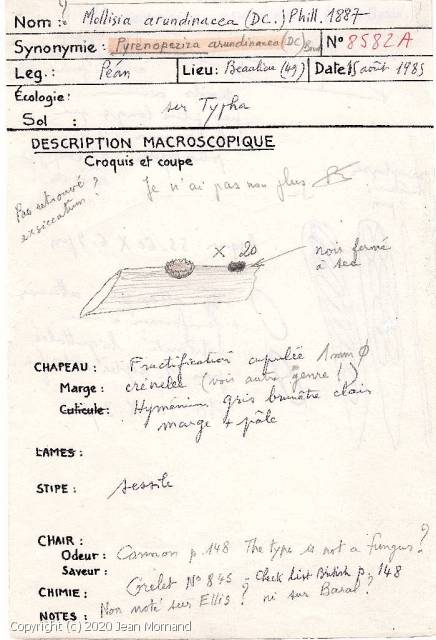 ?
Nom : Mollisia arundinacea (DC.) Phill. 1887
Synonymie : Pyrenopeziza arundinacea (DC) Boud N° 8582A
Leg. : Péan Lieu: Beaulieu (49) Date: 15 août 1985
Écologie :
sur Typha
Sol :
DESCRIPTION MACROSCOPIQUE
Croquis et coupe
Pas retrouvé ?
exsiccatum.
Je n'ai pas non plus
X 20
noir fermé
à sec
CHAPEAU : Fructification cupulée 1mm Ø
Marge : crénelée (vois autre genre !)
Cuticule : Hyménium gris brunâtre clair
marge + pâle
LAMES :
STIPE : sessile
CHAIR :
Odeur : Cannon p. 148 The type is not a fungus ?
Saveur :
CHIMIE : Grelet N° 845 - Check list British p. 148
NOTES : Non noté sur Ellis ? ni sur Baral.
Copyright (c) 2020 Jean Mornand